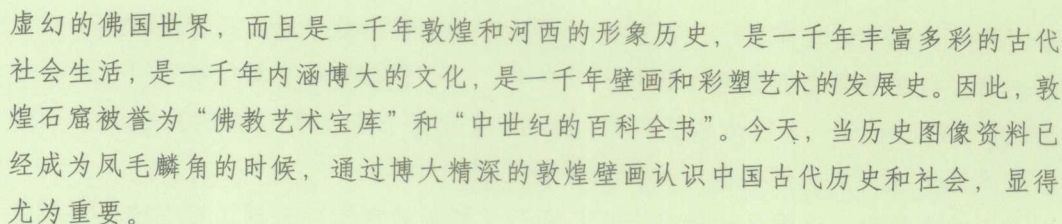 虚幻的佛国世界，而且是一千年敦煌和河西的形象历史，是一千年丰富多彩的古代
社会生活，是一千年内涵博大的文化，是一千年壁画和彩塑艺术的发展史。因此，敦
煌石窟被誉为“佛教艺术宝库”和“中世纪的百科全书”。今天，当历史图像资料已
经成为凤毛麟角的时候，通过博大精深的敦煌壁画认识中国古代历史和社会，显得
尤为重要。